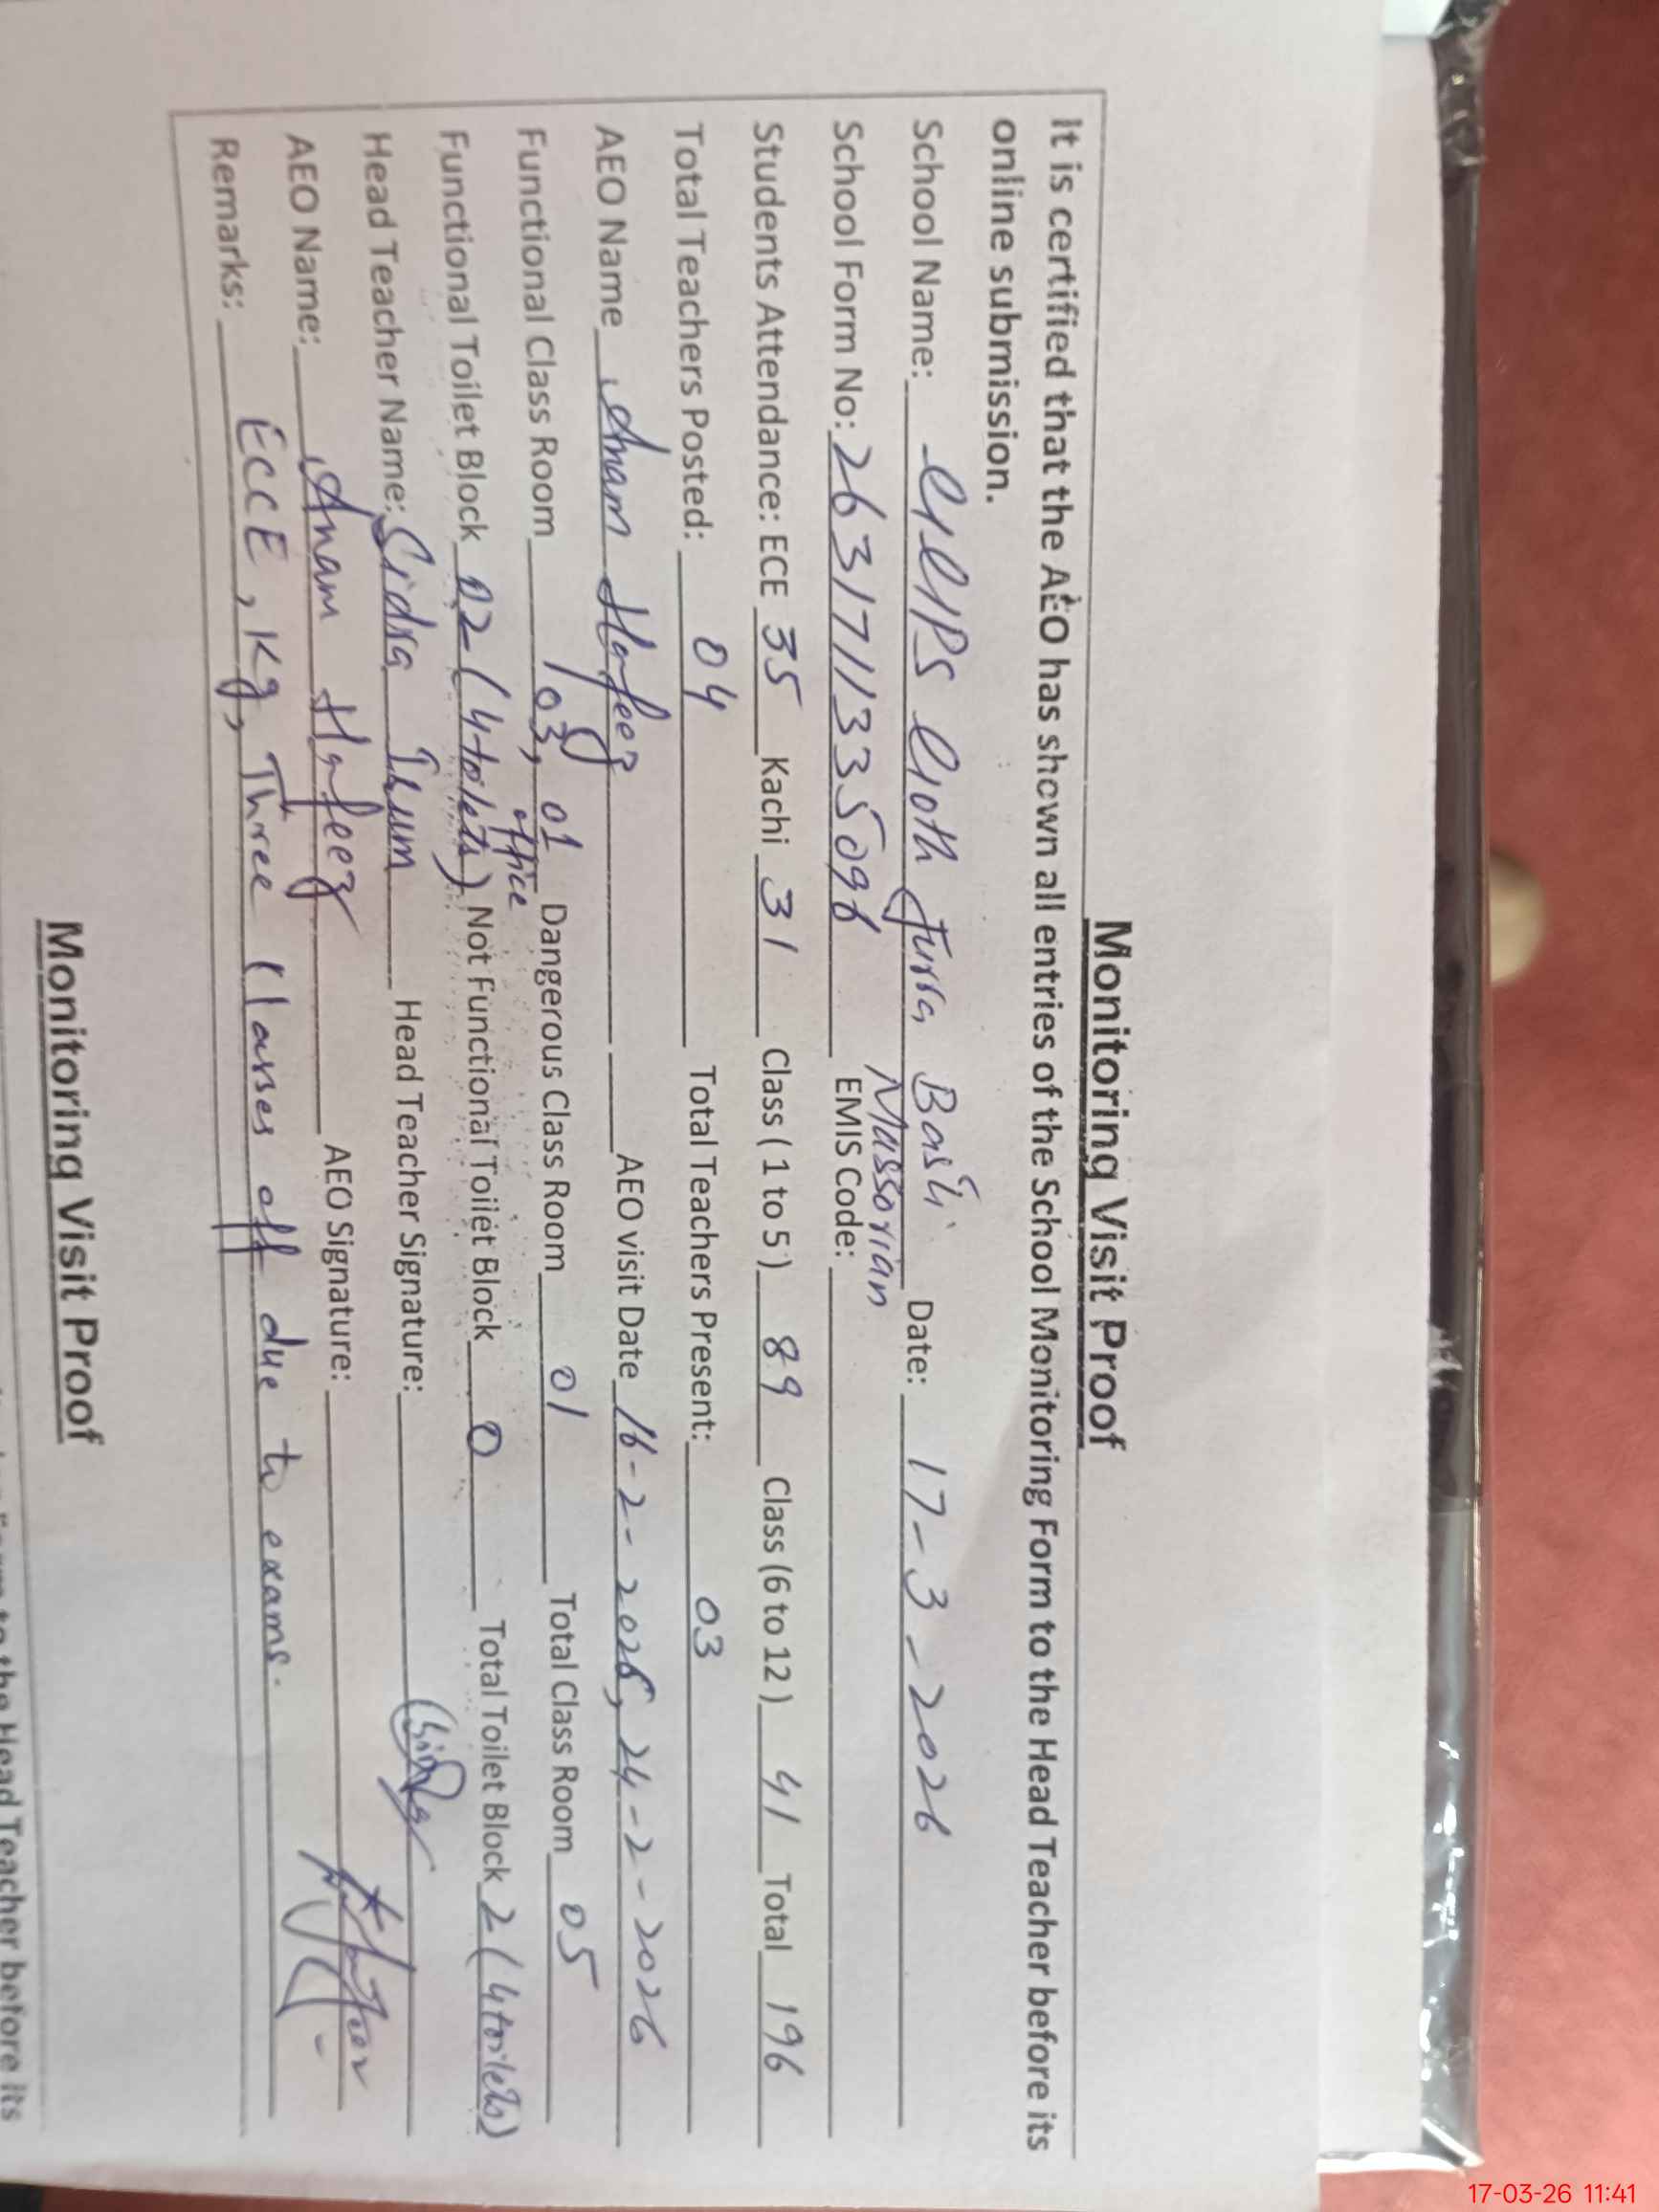 Monitoring Visit Proof
It is certified that the AEO has shown all entries of the School Monitoring Form to the Head Teacher before its
online submission.
School Name: Basti Date: 17-3-2026
Massorian
School Form No: 2631711335096 EMIS Code:
Students Attendance: ECE 35 Kachi 31 Class ( 1 to 5 ) 89 Class (6 to 12 ) 41 Total 196
Total Teachers Posted: 04 Total Teachers Present: 03
AEO Name Anam Hafeez AEO visit Date 16-2-2026, 24-2-2026
Functional Class Room 03, 01 office Dangerous Class Room 01 Total Class Room 05
Functional Toilet Block 02 (4 toilets) Not Functional Toilet Block 0 Total Toilet Block 2 (4 toilets)
Head Teacher Name: Sidra Head Teacher Signature:
AEO Name: Anam Hafeez AEO Signature:
Remarks: ECCE, Kg, Three Classes off due to exams.
Monitoring Visit Proof
to the Head Teacher before its
17-03-26 11:41